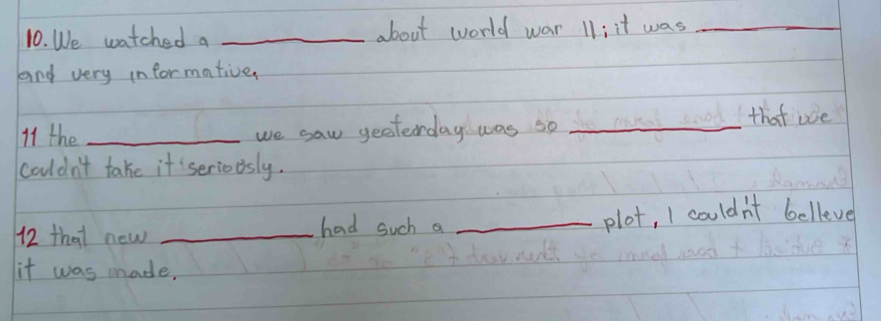 10. We watched a ________ about world war II; it was ________
and very informative.
11 the ________ we saw yeeterday was so ________ that we
couldn't take it seriously.
12 that new ________ had such a ________ plot, I couldn't belleve
it was made.